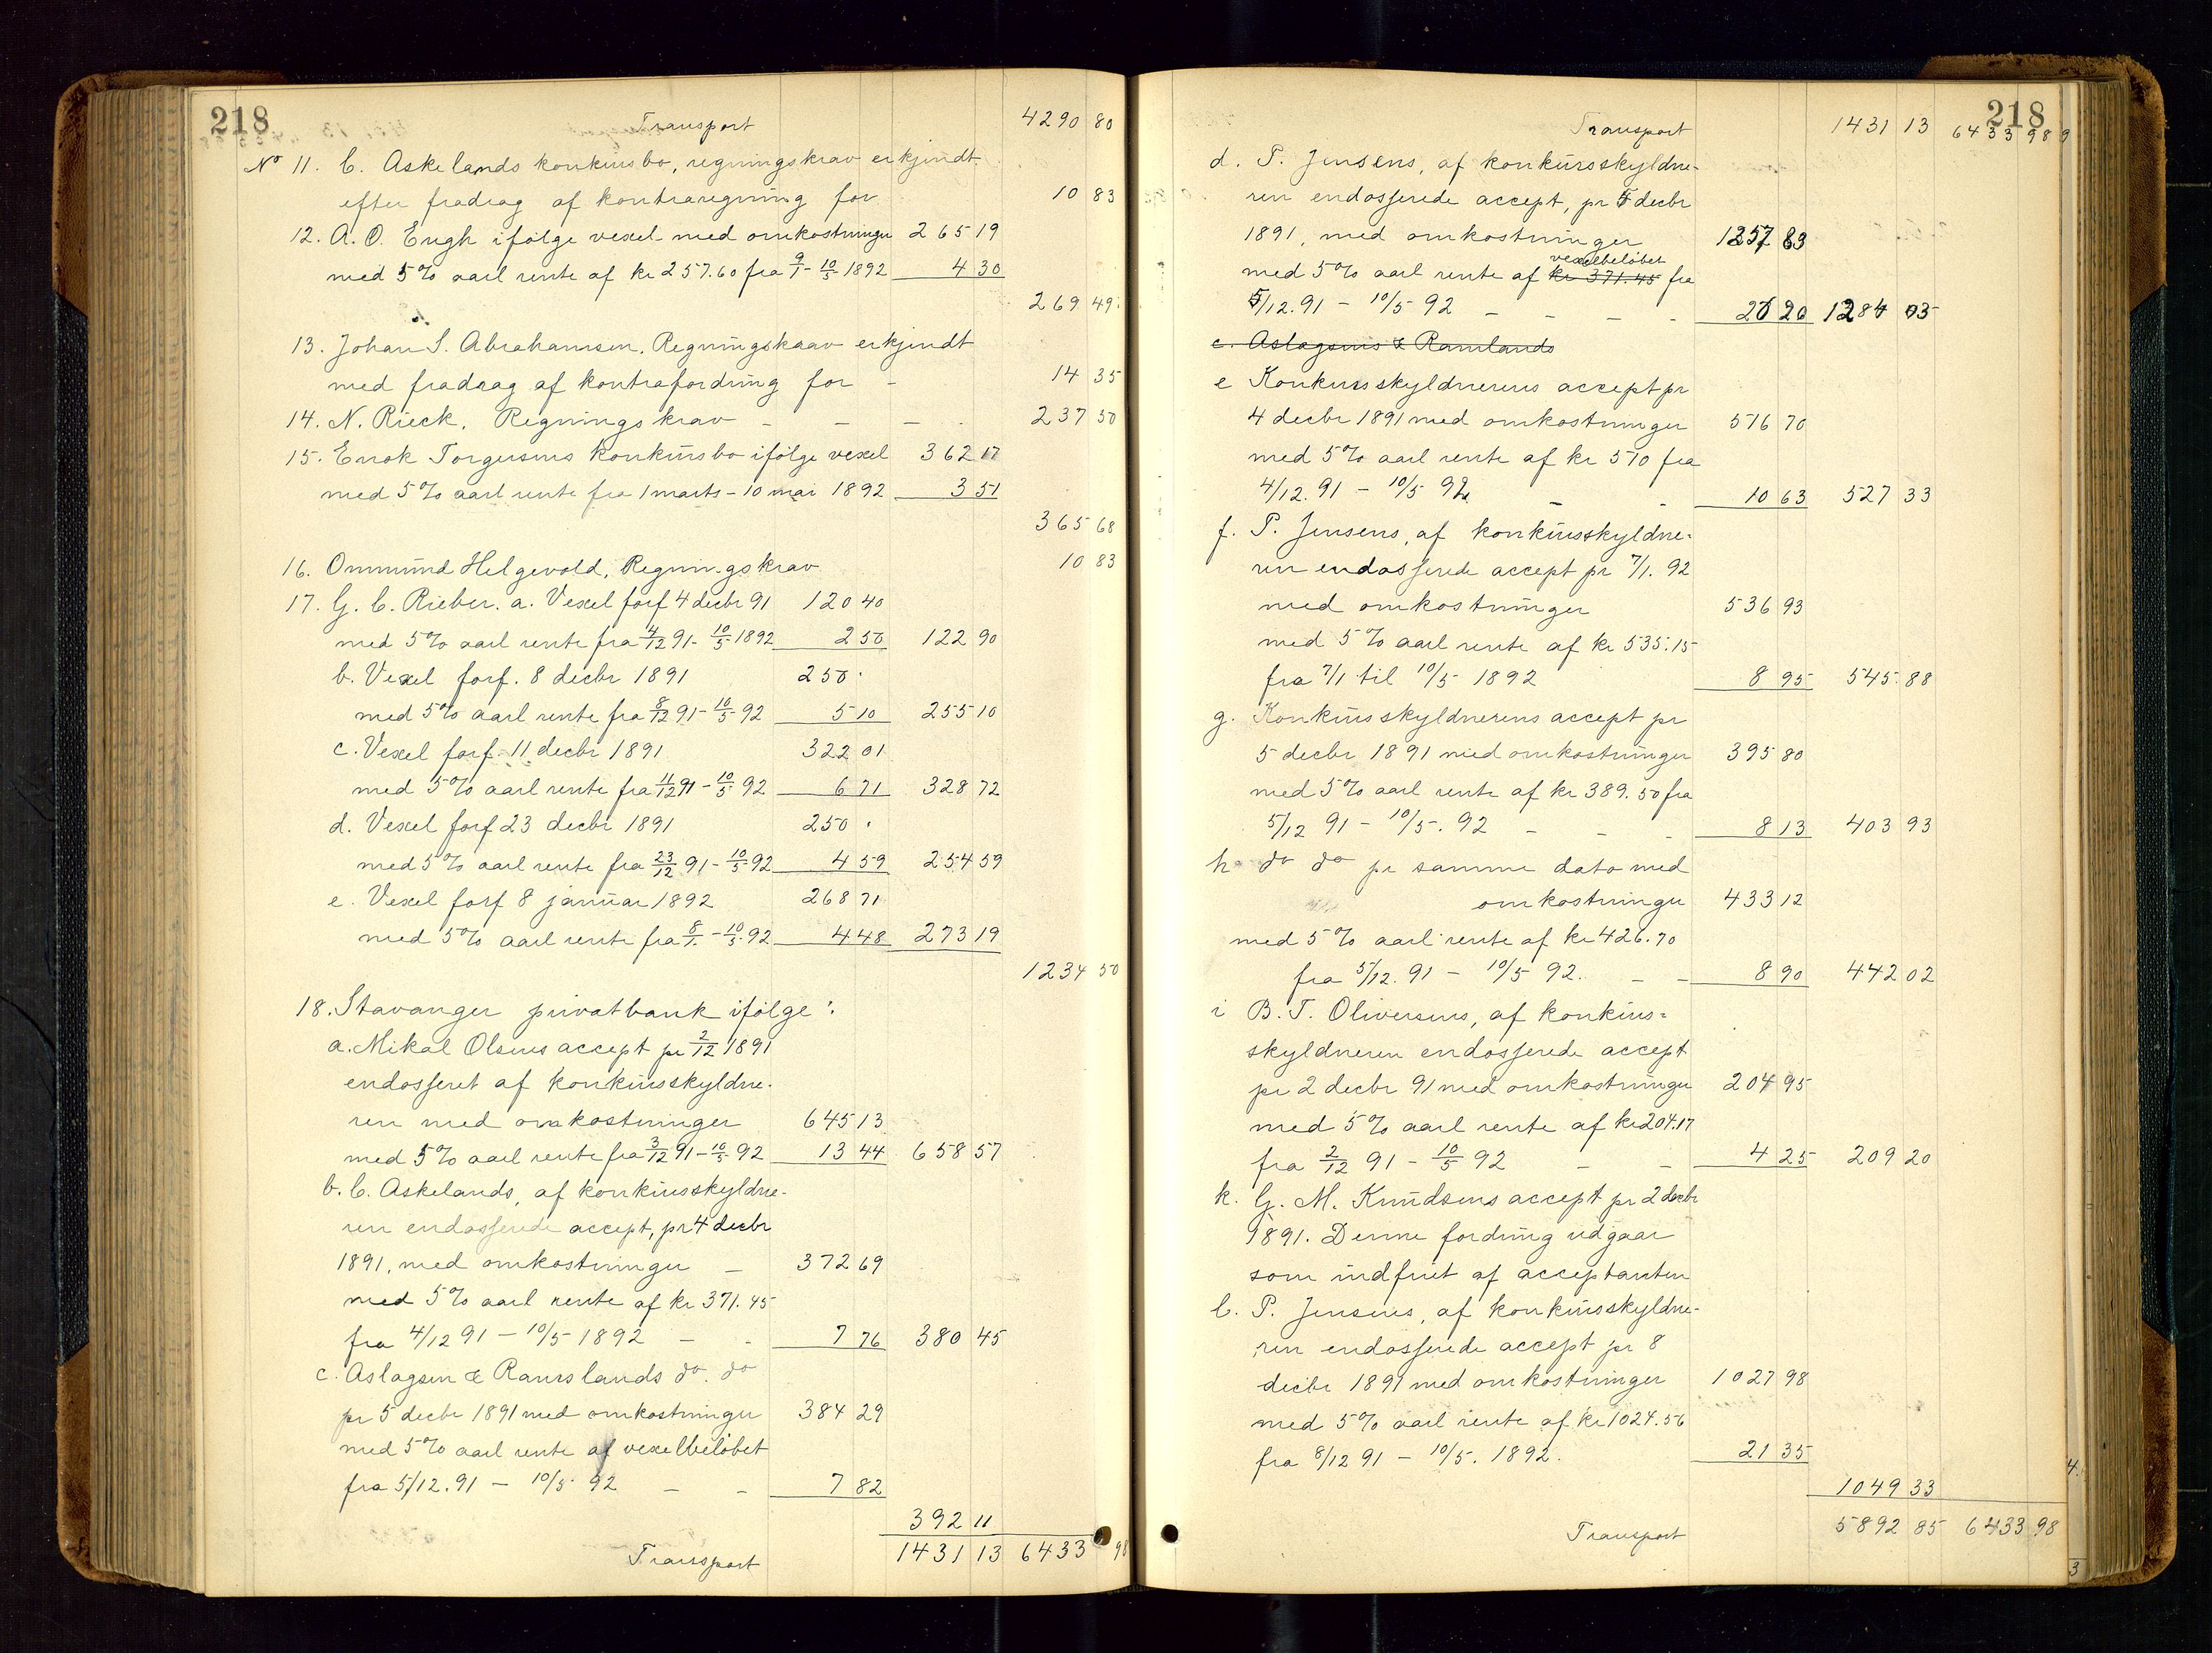 218
Transport 4290 80
No 11. C. Askelands konkursbo, regningskrav erkjendt
efter fradrag af kontraregning for 10 83
12. A. O. Engh ifølge vexel med omkostninger 265 19
med 5% aarl rente af kr 257.60 fra 9/1 - 10/5 1892 4 30
269 49
13. Johan S. Abrahamsen. Regningskrav erkjendt
med fradrag af kontrafordring for - 14 35
14. N. Rieck. Regningskrav - - - 237 50
15. Enok Torgersens konkursbo ifølge vexel 362 17
med 5% aarl rente fra 1 marts - 10 mai 1892 3 51
365 68
16. Ommund Helgevold, Regningskrav 10 83
17. G. C. Rieber. a. Vexel forf 4 decbr 91 120 40
med 5% aarl rente fra 4/12 91 - 10/5 1892 2 50 122 90
b. Vexel forf. 8 decbr 1891 250 .
med 5% aarl rente fra 8/12 91 - 10/5 92 5 10 255 10
c. Vexel forf 11 decbr 1891 322 01
med 5% aarl rente fra 11/12 91 - 10/5 92 6 71 328 72
d. Vexel forf 23 decbr 1891 250 .
med 5% aarl rente fra 23/12 91 - 10/5 92 4 59 254 59
e. Vexel forf 8 januar 1892 268 71
med 5% aarl rente fra 8/1 - 10/5 92 4 48 273 19
1234 50
18. Stavanger privatbank ifølge:
a. Mikal Olsens accept pr 2/12 1891
endosseret af konkursskyldne-
ren med omkostninger 645 13
med 5% aarl rente fra 3/12 91 - 10/5 92 13 44 658 57
b. C. Askelands, af konkursskyldne-
ren endosserede accept, pr 4 decbr
1891, med omkostninger - 372 69
med 5% aarl rente af kr 371.45
fra 4/12 91 - 10/5 1892 - - 7 76 380 45
c. Aslagsen & Ramslands do. do
pr 5 decbr 1891 med omkostninger 384 29
med 5% aarl rente af vexelbeløbet
fra 5/12. 91 - 10/5 92 - - 7 82
392 11
Transport 1431 13 6433 98
218
Transport 1431 13 6433 98
d. P. Jensens, af konkursskyldne-
ren endosserede accept, pr 5 decbr
1891, med omkostninger 1257 83
vexelbeløbet
med 5% aarl rente af kr 371.45 fra
5/12. 91 - 10/5 92 - - - - 26 20 1284 03
e. Aslagsens & Ramlands
e Konkursskyldnerens accept pr
4 decbr 1891 med omkostninger 516 70
med 5% aarl rente af kr 510 fra
4/12. 91 - 10/5 92 - - 10 63 527 33
f. P. Jensens, af konkursskyldne-
ren endosserede accept pr 7/1. 92
med omkostninger 536 93
med 5% aarl rente af kr 535.15
fra 7/1 til 10/5 1892 8 95 545 88
g. Konkursskyldnerens accept pr
5 decbr 1891 med omkostninger 395 80
med 5% aarl rente af kr 389.50 fra
5/12 91 - 10/5. 92 - - - 8 13 403 93
h do do pr samme dato med
omkostninger 433 12
med 5% aarl rente af kr 426.70
fra 5/12. 91 - 10/5 92. - - 8 90 442 02
i B. T. Oliversens, af konkurs-
skyldneren endosserede accept
pr 2 decbr 91 med omkostninger 204 95
med 5% aarl rente af kr 204.17
fra 2/12 91 - 10/5 92 - - 4 25 209 20
k. G. M. Knudsens accept pr 2 decbr
1891. Denne fordring udgaar
som indfriet af acceptanten
l. P. Jensens, af konkursskyldne-
ren endosserede accept pr 8
decbr 1891 med omkostninger 1027 98
med 5% aarl rente af kr 1024.56
fra 8/12 91 - 10/5. 1892. 21 35
1049 33
Transport 5892 85 6433 98